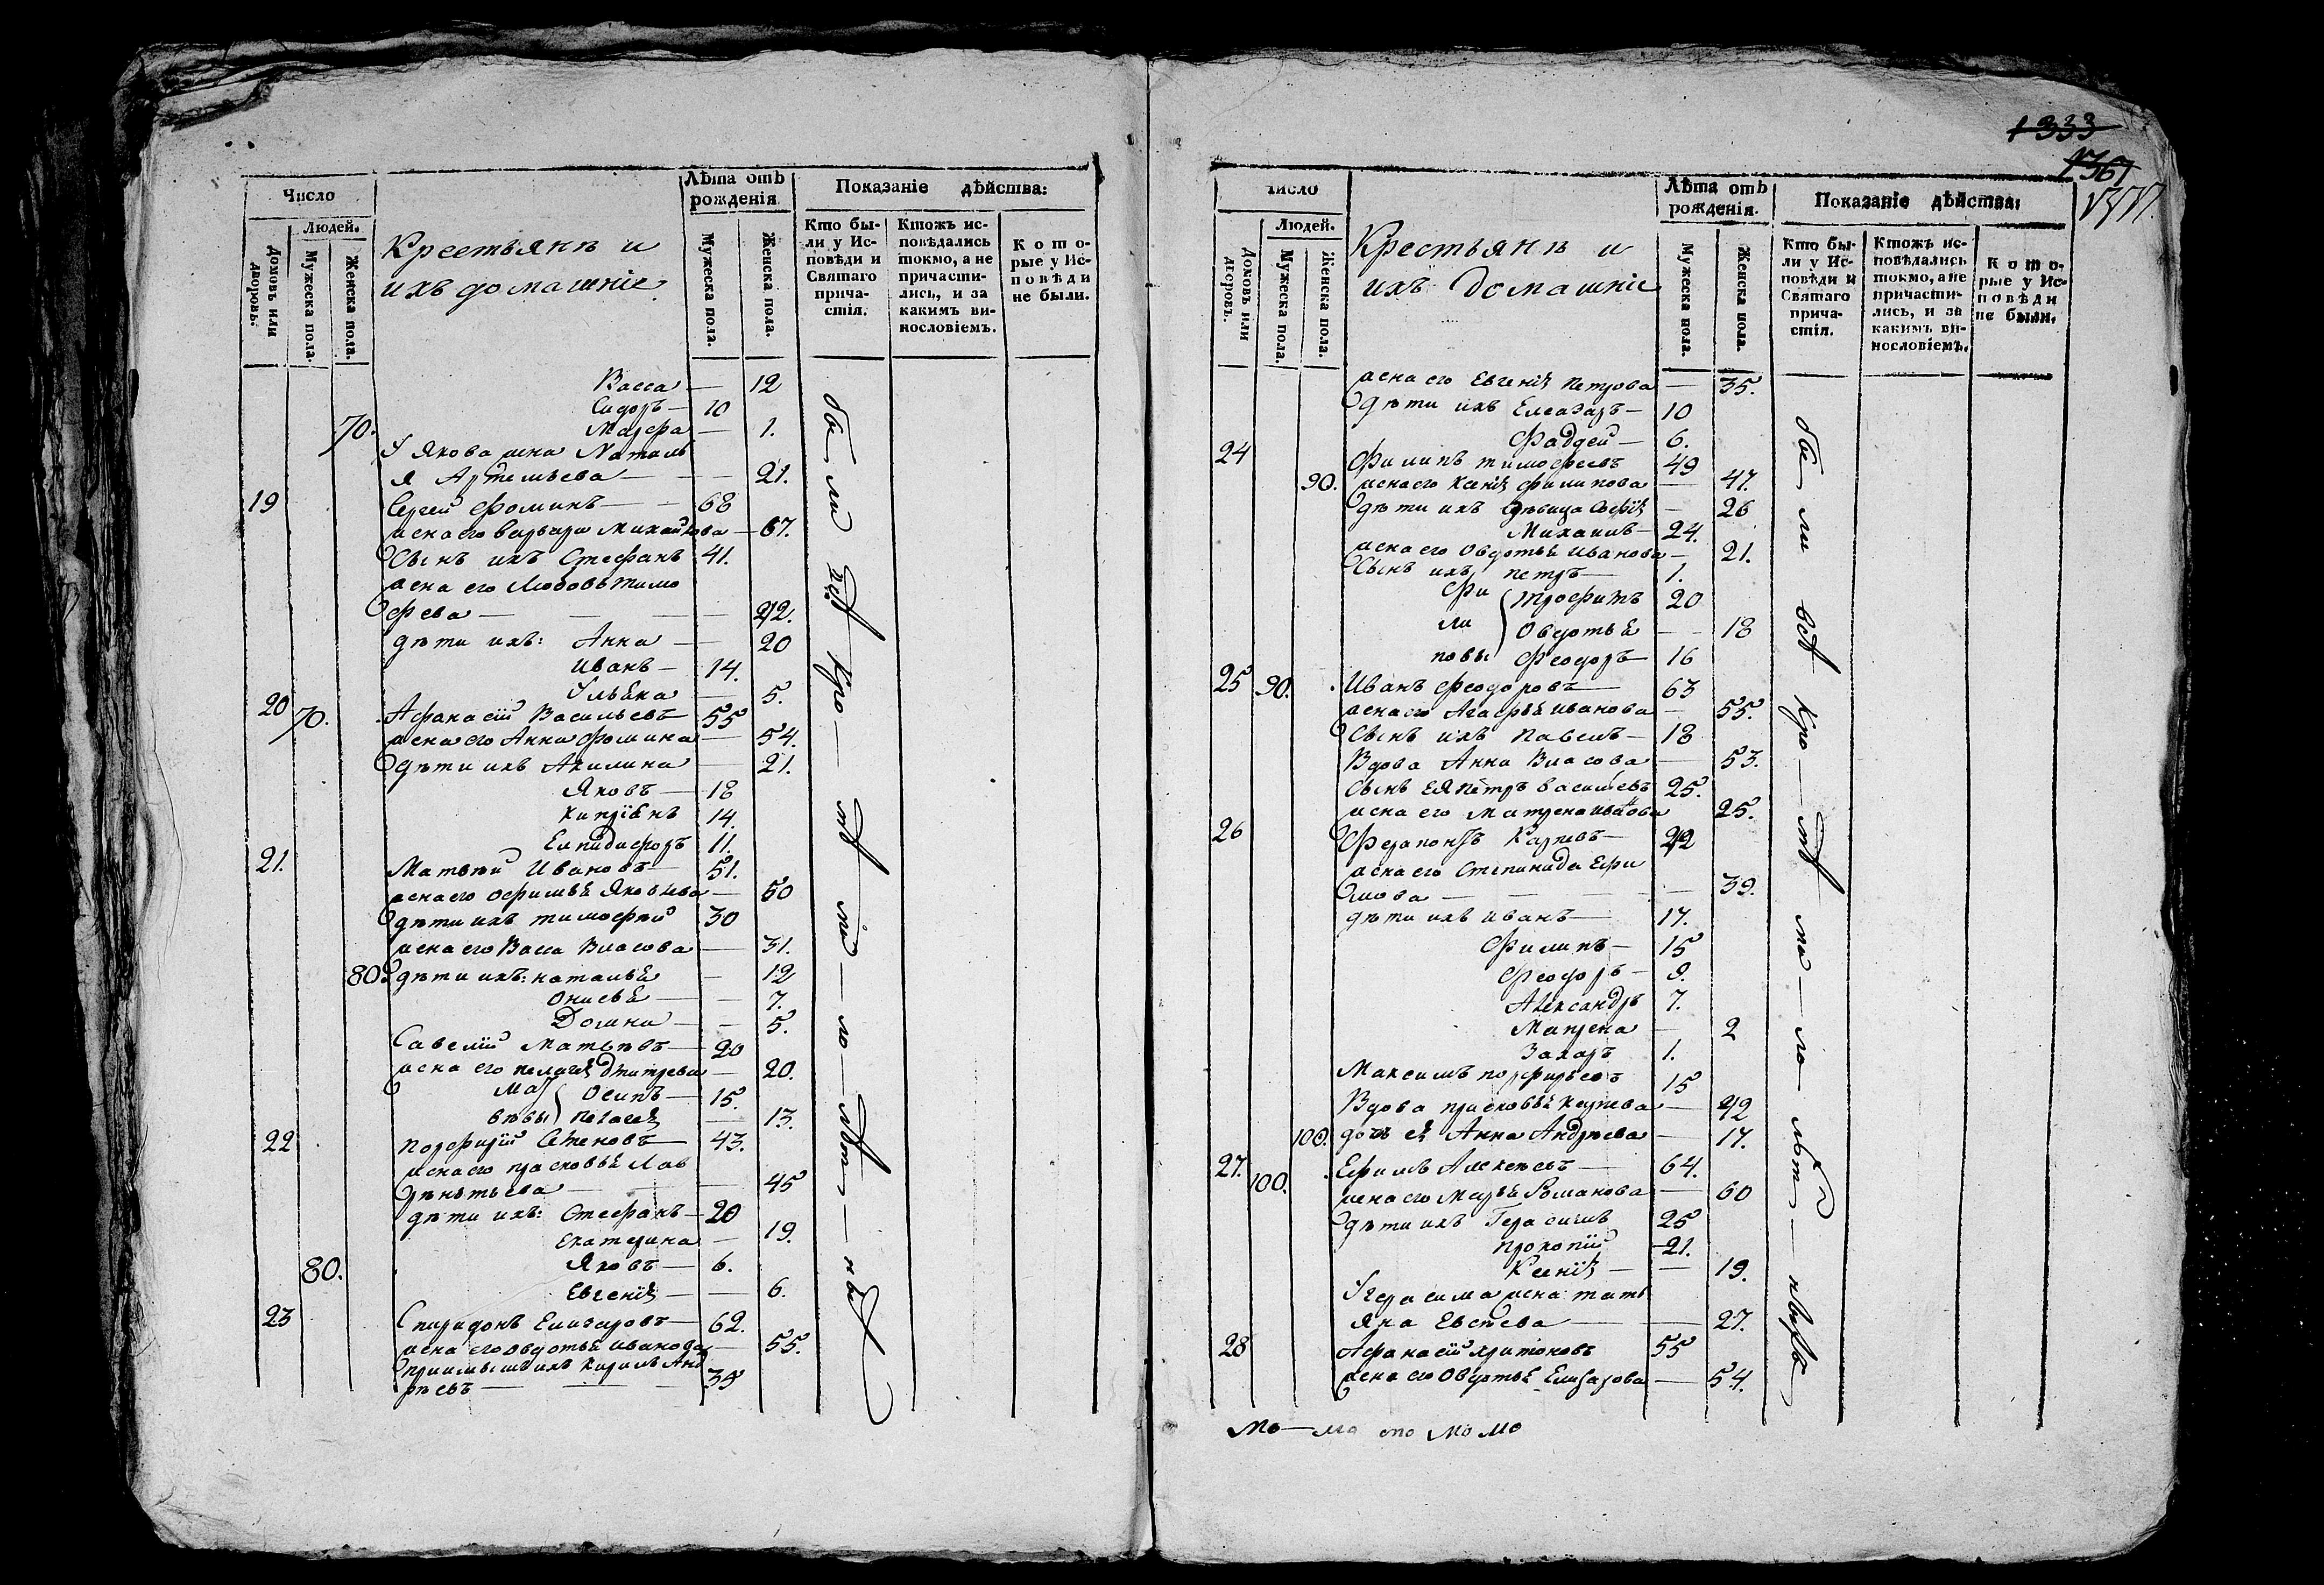 Число
Людей.
Домовъ или дворовъ.
Мужеска пола.
Женска пола.
Крестьянъ и
ихъ домашніе
Лѣта отъ рожденія.
Мужеска пола.
Женска пола.
Показаніе дѣйства:
Кто бы-
ли у Ис-
повѣди и
Святаго
прича-
стія.
Ктожъ ис-
повѣдались
токмо, а не
причасти-
лись, и за
какимъ ви-
нословіемъ.
Кото-
рые у Ис-
повѣди
не были.
Васса — 12
Сидоръ — 10
70. Маѳра — 1.
У Якова жена Наталь
я Артемьева — 21.
19 Сергей Фоминъ — 68
жена его Варвара Михайлова — 67.
Сынъ ихъ Стефанъ 41.
жена его Любовь Тимо
феева — 42.
дѣти ихъ: Анна — 20
Иванъ — 14.
Ульяна — 5.
20 70. Афанасій Васильевъ 55
жена его Анна Фомина — 54.
дѣти ихъ Акилина — 21.
Яковъ — 18
Кипріянъ 14.
Елпидифоръ 11.
21. Матвѣй Ивановъ 51.
жена его Офимья Яковлева — 50
дѣти ихъ Тимофѣй 30
жена его Васса Власова — 31.
80. дѣти ихъ: Наталья — 12
Онисья — 7.
Домна — 5.
Савелій Матвѣевъ 20
жена его Пелагея Дмитрева — 20.
Мат
вѣвы
Осипъ — 15.
Пелагея — 13.
22 Порфирій Семеновъ — 43.
жена его Прасковья Лав
рѣнтьева — 45
дѣти ихъ: Стефанъ — 20
Екатерина — 19.
80. Яковъ — 6.
Евгенія — 6.
23 Спиридонъ Елизаровъ — 62.
жена его Овдотья Иванова — 55.
приимышъ ихъ Кирилъ Анд
рѣевъ — 35
бы ли всѣ кро — мѣ ма — ло — лѣт — ны
1333
1361
Число
Людей.
Домовъ или дворовъ.
Мужеска пола.
Женска пола.
Крестьянъ и
ихъ домашніе
Лѣта отъ рожденія.
Мужеска пола.
Женска пола.
Показаніе дѣйства:
Кто бы-
ли у Ис-
повѣди и
Святаго
прича-
стія.
Ктожъ ис-
повѣдались
токмо, а не
причасти-
лись, и за
какимъ ви-
нословіемъ.
Кото-
рые у Ис-
повѣди
не были.
жена его Евгенія Петрова — 35.
дѣти ихъ Елеазаръ — 10
Фаддей — 6.
24 Филипъ Тимофеевъ 49
90. жена его Ксенія Филипова — 47.
дѣти ихъ дѣвица Софія — 26
Михаилъ — 24.
жена его Овдотья Иванова — 21.
Сынъ ихъ Петръ — 1.
Фи
ли
повы
Трофимъ 20
Овдотья — 18
Феодоръ 16
25 90. Иванъ Феодоровъ 63
жена его Агафья Иванова — 55.
Сынъ ихъ Павелъ — 18
Вдова Анна Власова — 53.
Сынъ ея Петръ Васильевъ 25.
жена его Матрена Иванова 25.
26 Ферапонтъ Карпевъ — 42
жена его Степанида Ефи
мова — 39.
дѣти ихъ Иванъ — 17.
Филипъ — 15
Феодоръ — 9.
Александръ 7.
Матрена — 2
Захаръ 1.
Максимъ Порфирьевъ 15
Вдова Прасковья Карпева — 42
100. дочь ея Анна Андрѣева — 17.
27. 100. Ефимъ Алексѣевъ — 64.
жена его Марья Романова — 60
дѣти ихъ Герасимъ 25
Прокопій — 21.
Ксенія — 19.
У Герасима жена Тать
яна Евсѣева — 27.
28 Афанасій Харитоновъ 55
жена его Овдотья Елизарова — 54.
бы ли всѣ кро — мѣ ма — ло лѣт — ныхъ